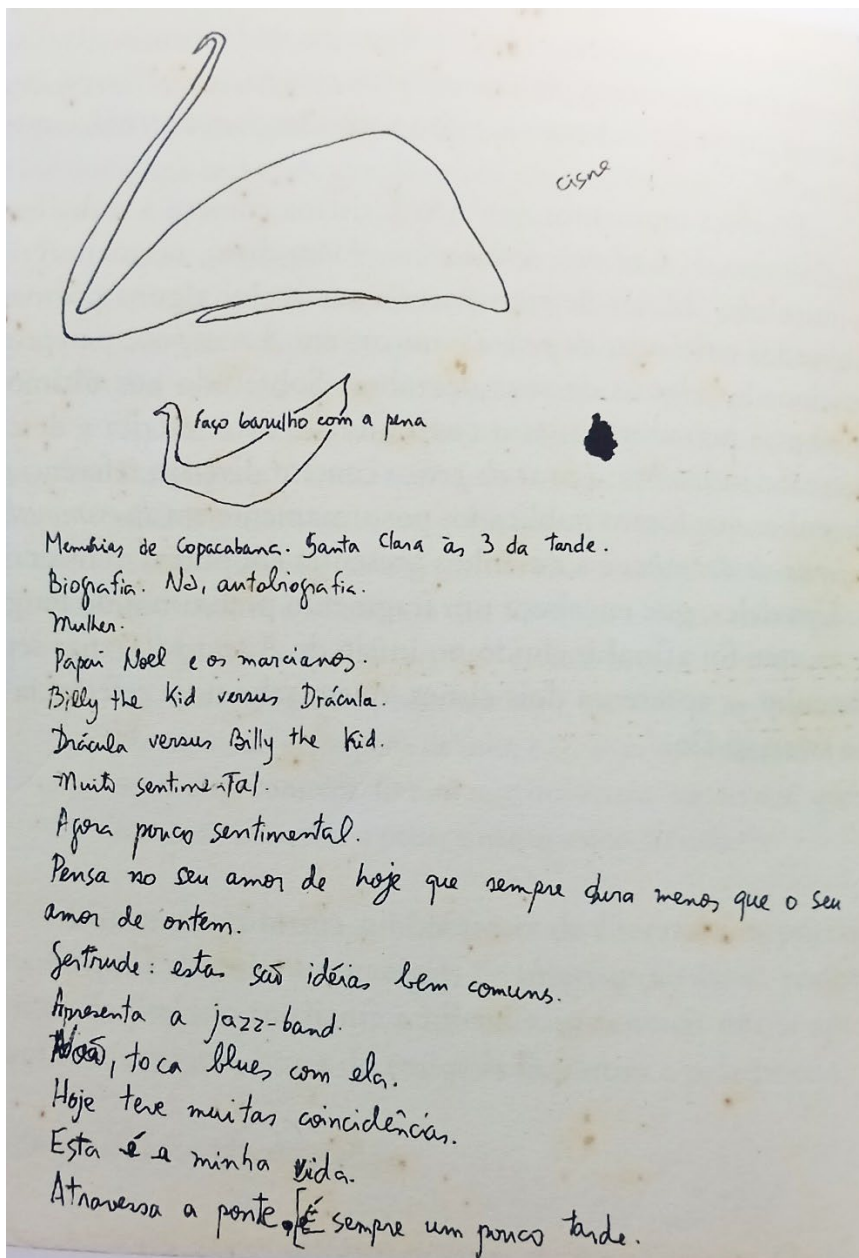 cisne
faço barulho com a pena
Memórias de Copacabana. Santa Clara às 3 da tarde.
Biografia. Não, autobiografia.
Mulher.
Papai Noel e os marcianos.
Billy the Kid versus Drácula.
Drácula versus Billy the Kid.
Muito sentimental.
Agora pouco sentimental.
Pensa no seu amor de hoje que sempre dura menos que o seu
amor de ontem.
Gertrude: estas são idéias bem comuns.
Apresenta a jazz-band.
Não, toca blues com ela.
Hoje teve muitas coincidências.
Esta é a minha vida.
Atravessa a ponte. [É sempre um pouco tarde.